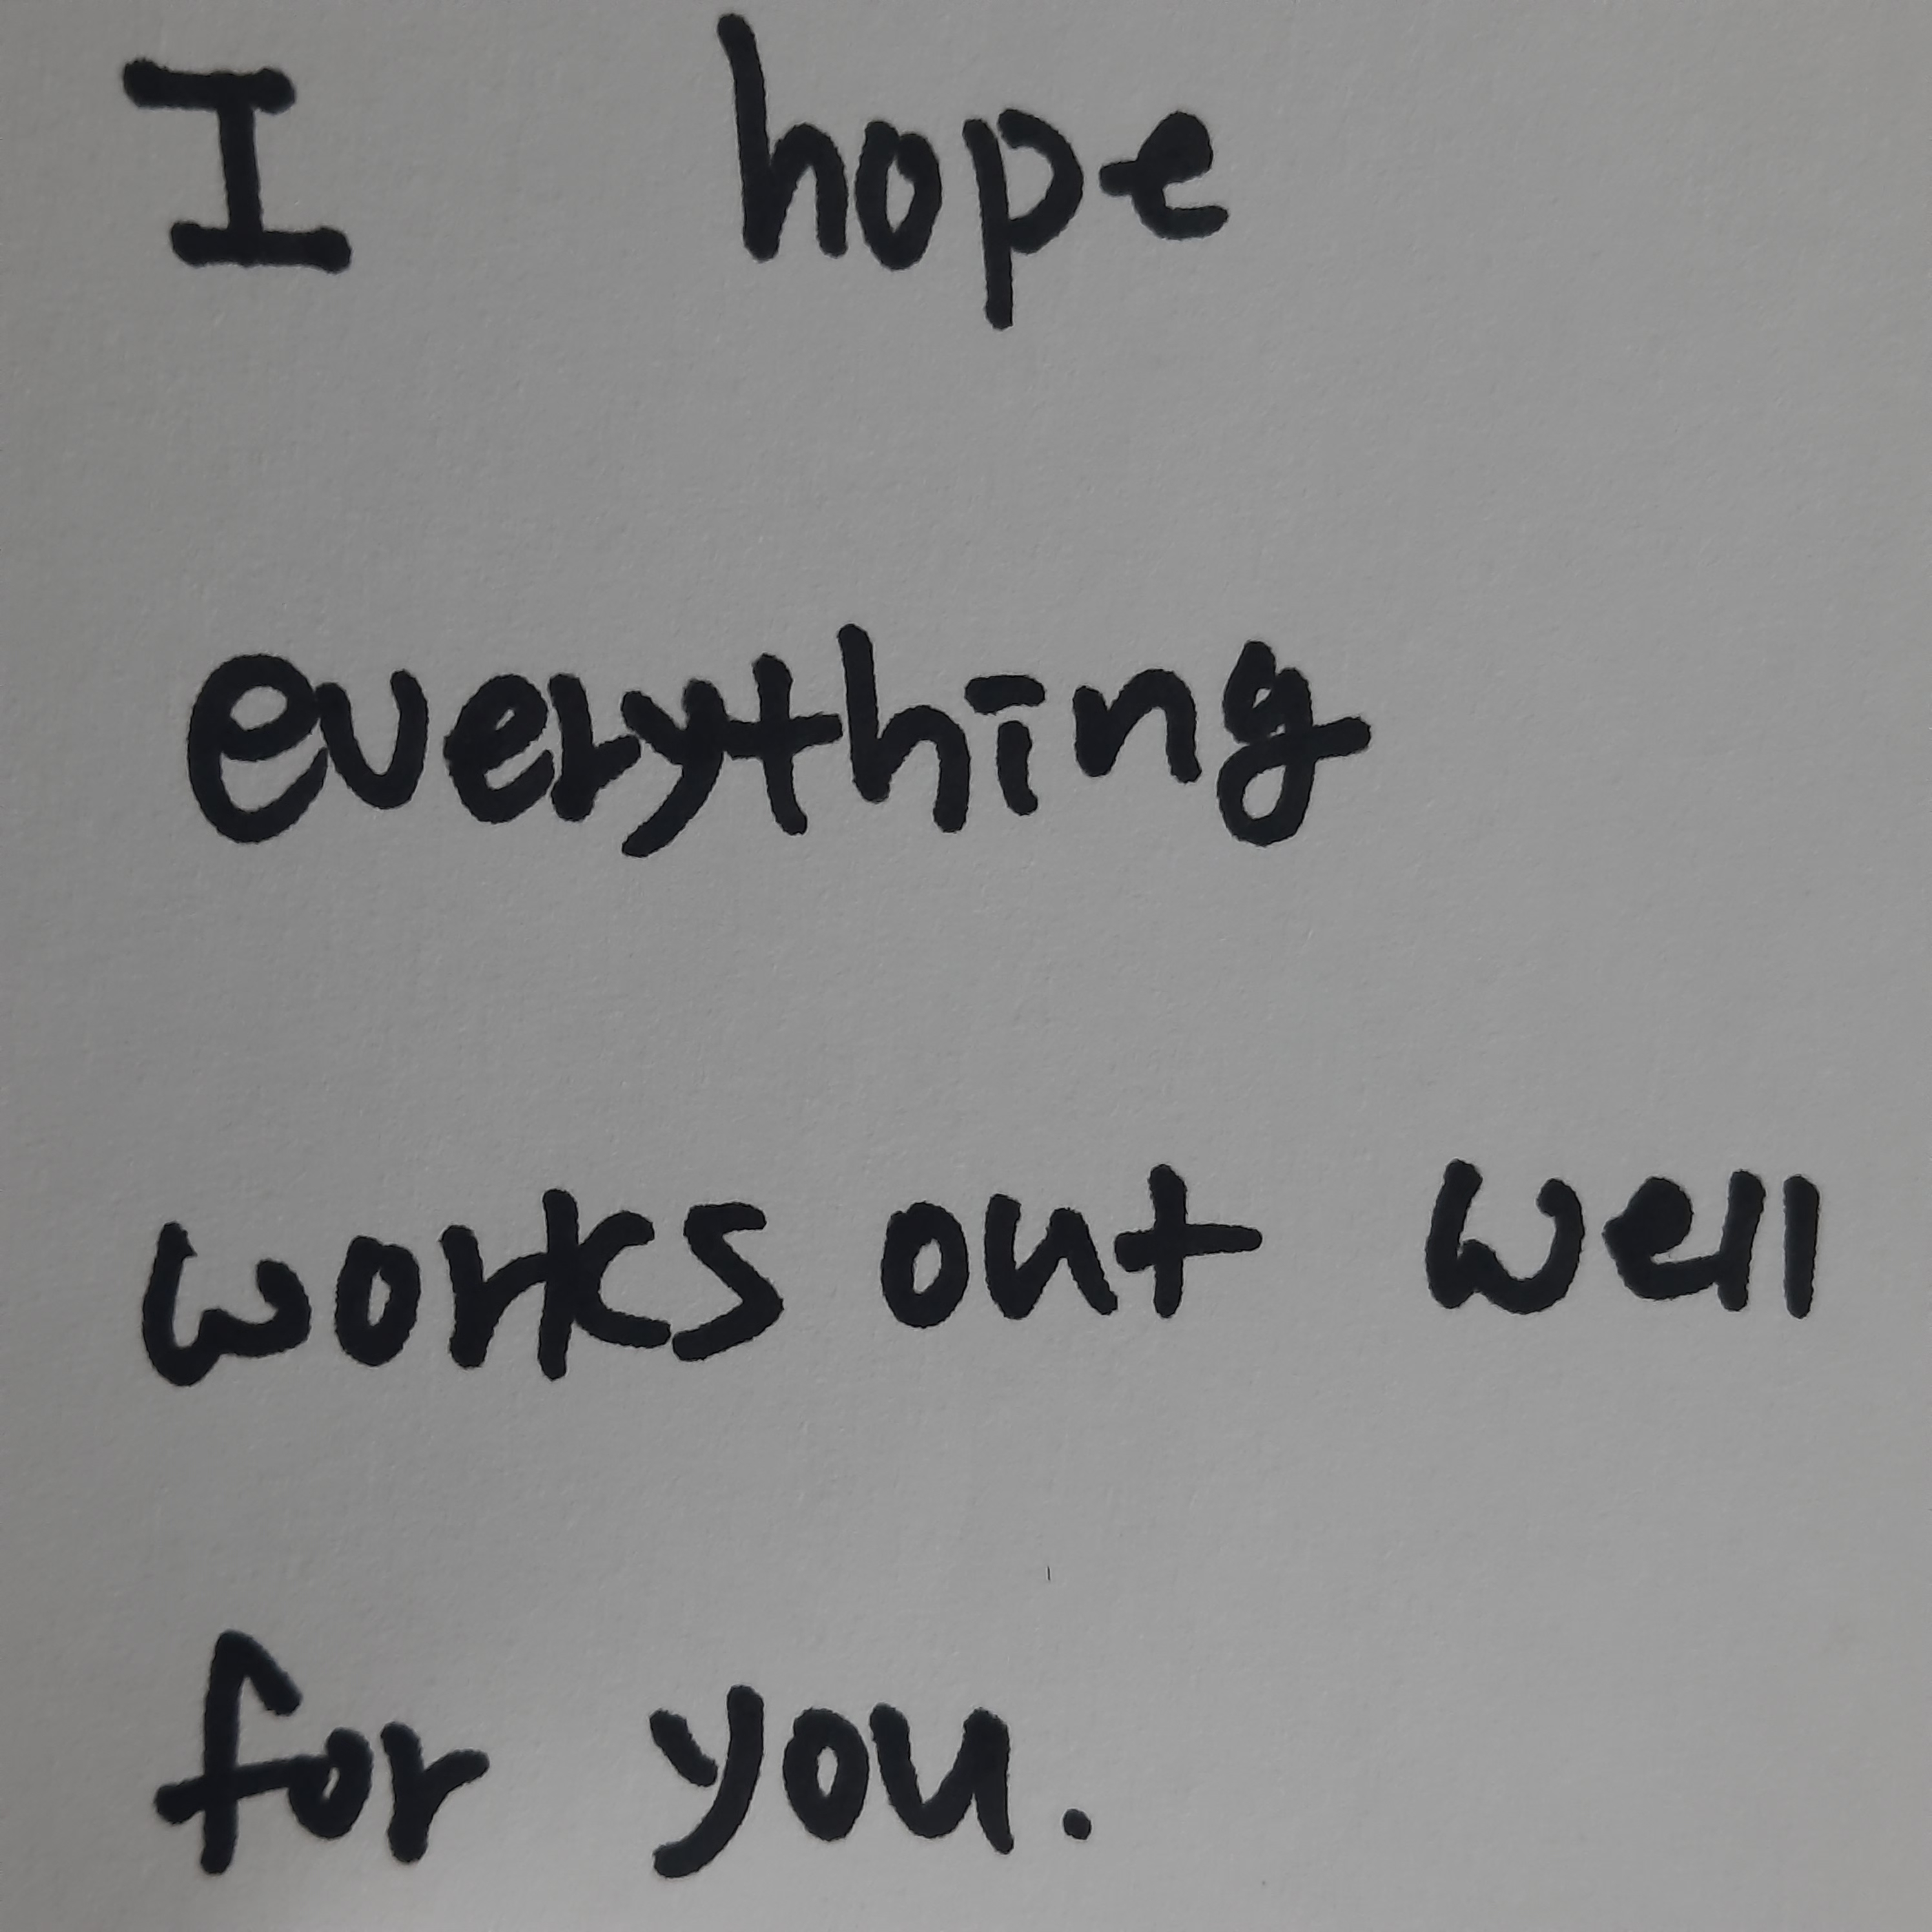 I hope
everything
works out well
for you.